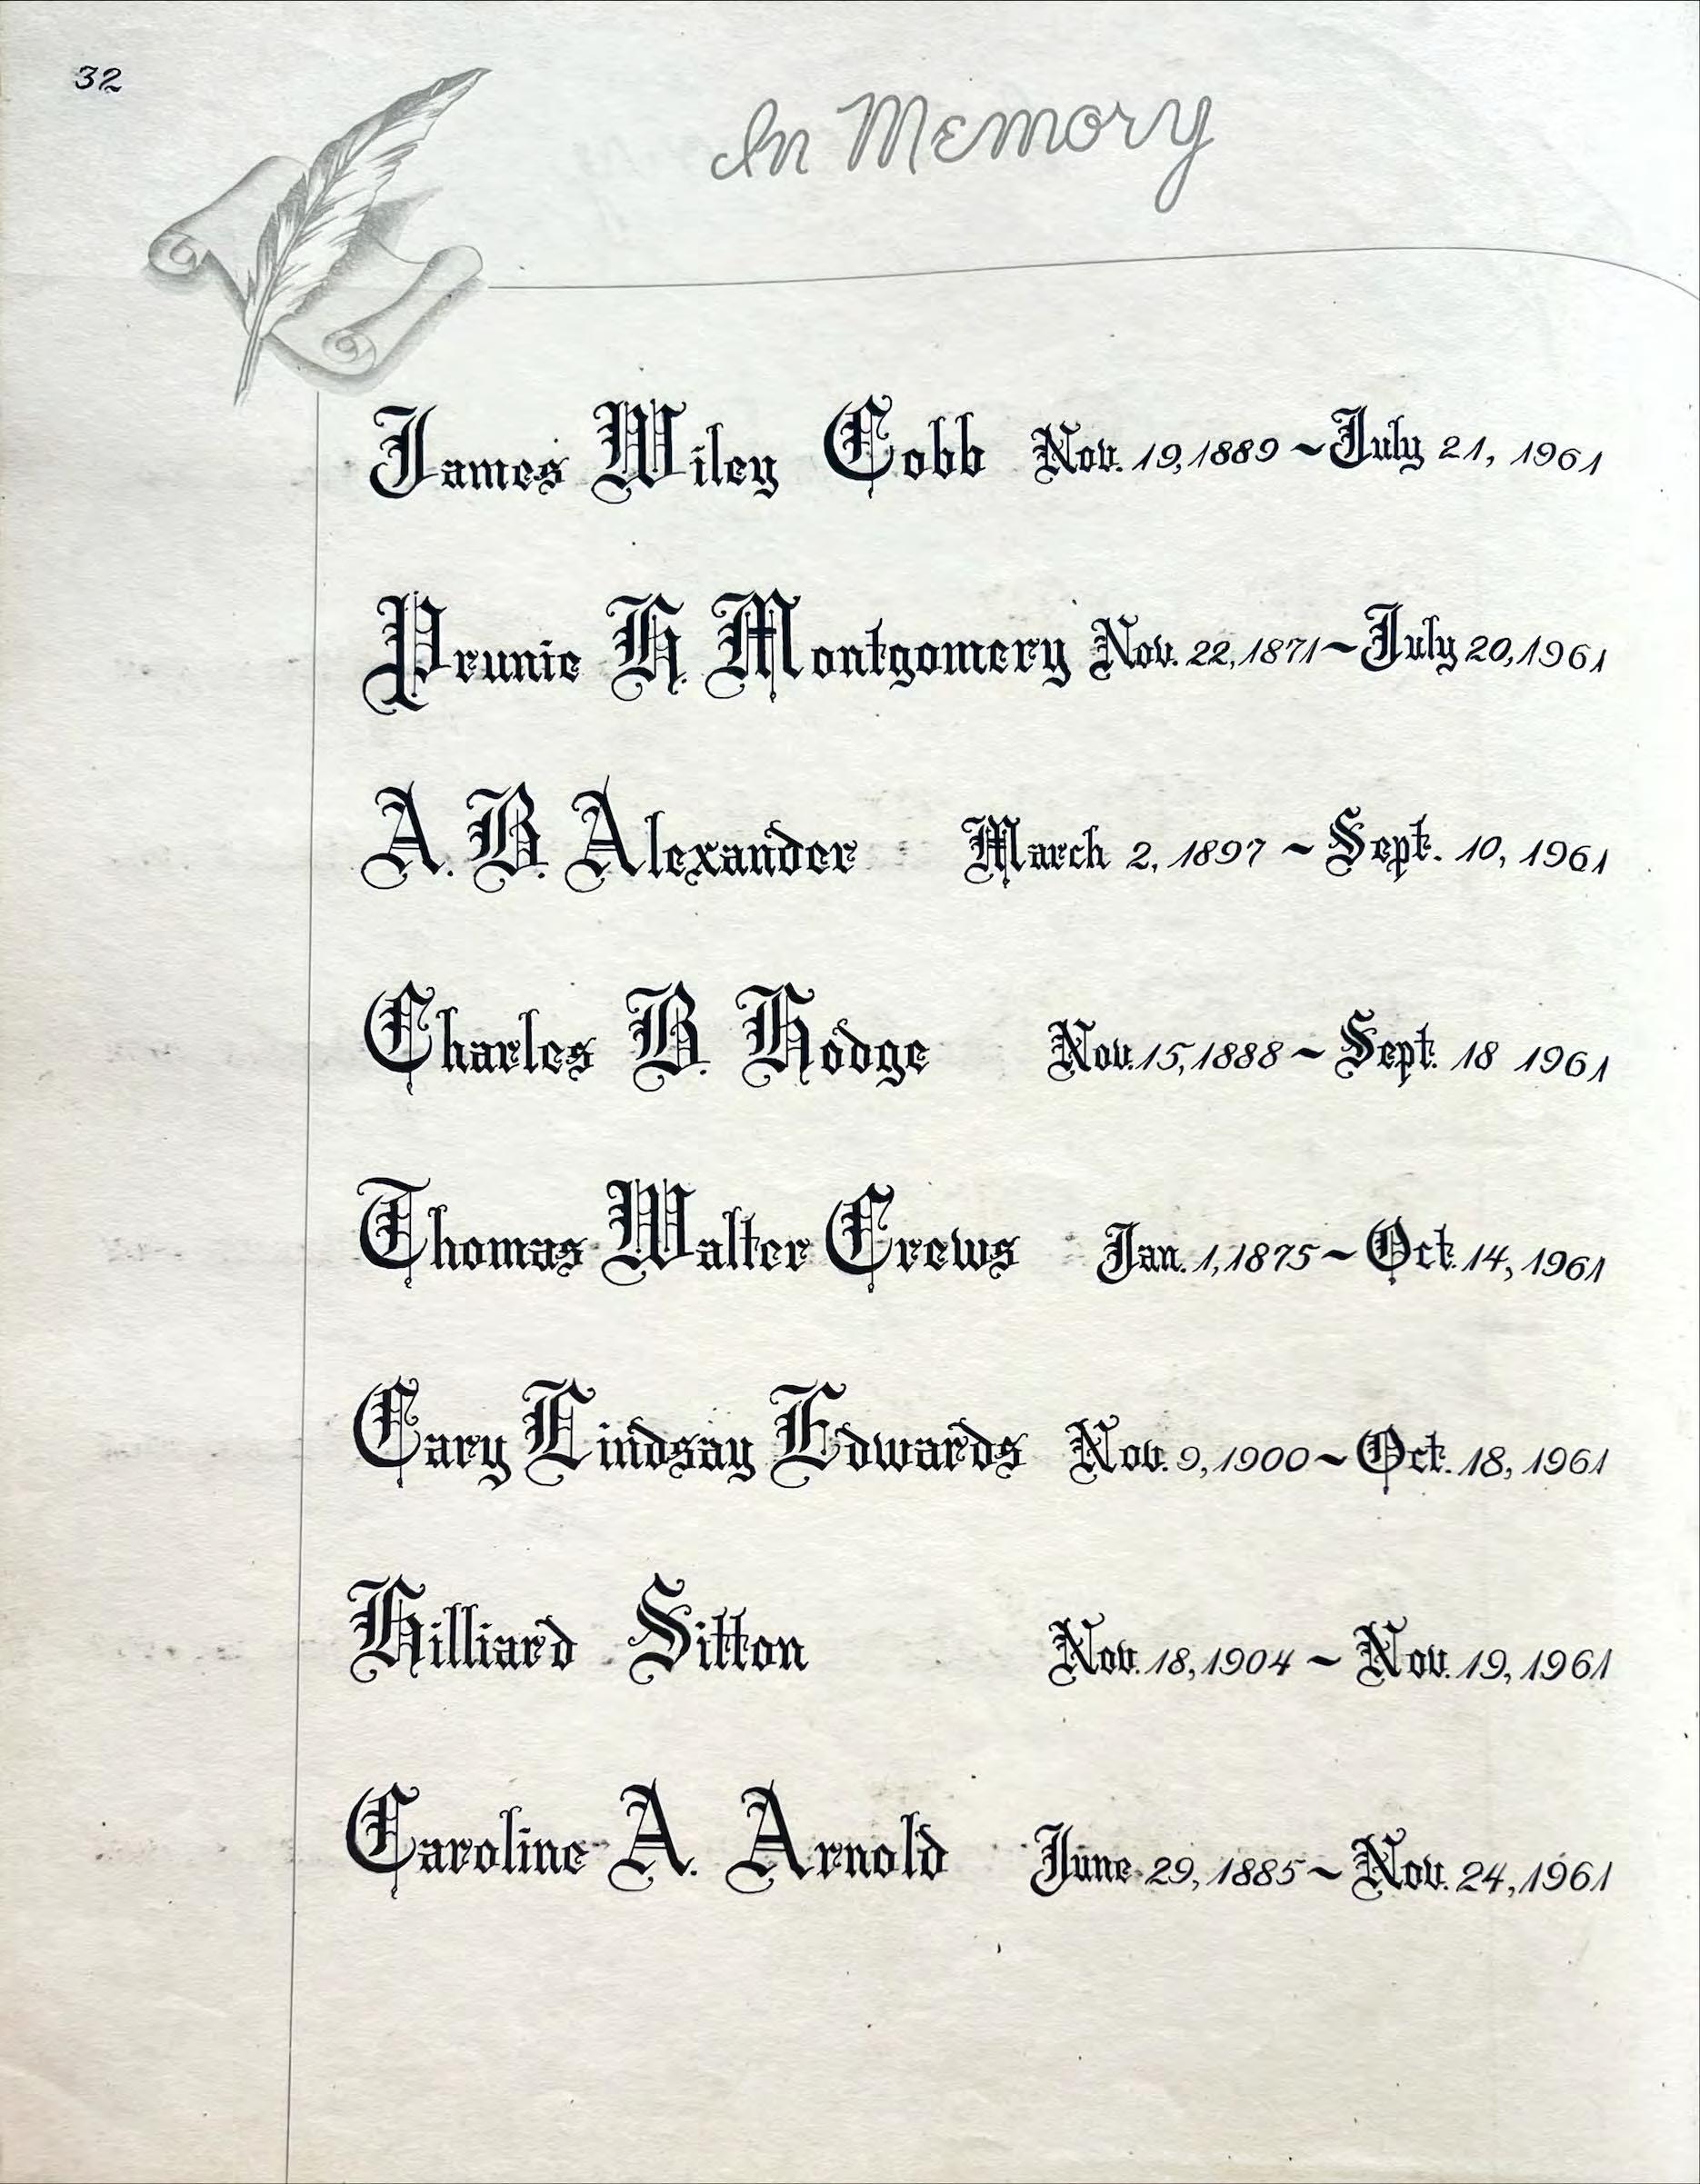 32
In Memory
James Wiley Cobb Nov. 19, 1889 ~ July 21, 1961
Prunie H. Montgomery Nov. 22, 1871 ~ July 20, 1961
A. B. Alexander March 2, 1897 ~ Sept. 10, 1961
Charles B. Hodge Nov. 15, 1888 ~ Sept. 18 1961
Thomas Walter Crews Jan. 1, 1875 ~ Oct. 14, 1961
Cary Lindsay Edwards Nov. 9, 1900 ~ Oct. 18, 1961
Hilliard Sitton Nov. 18, 1904 ~ Nov. 19, 1961
Caroline A. Arnold June 29, 1885 ~ Nov. 24, 1961